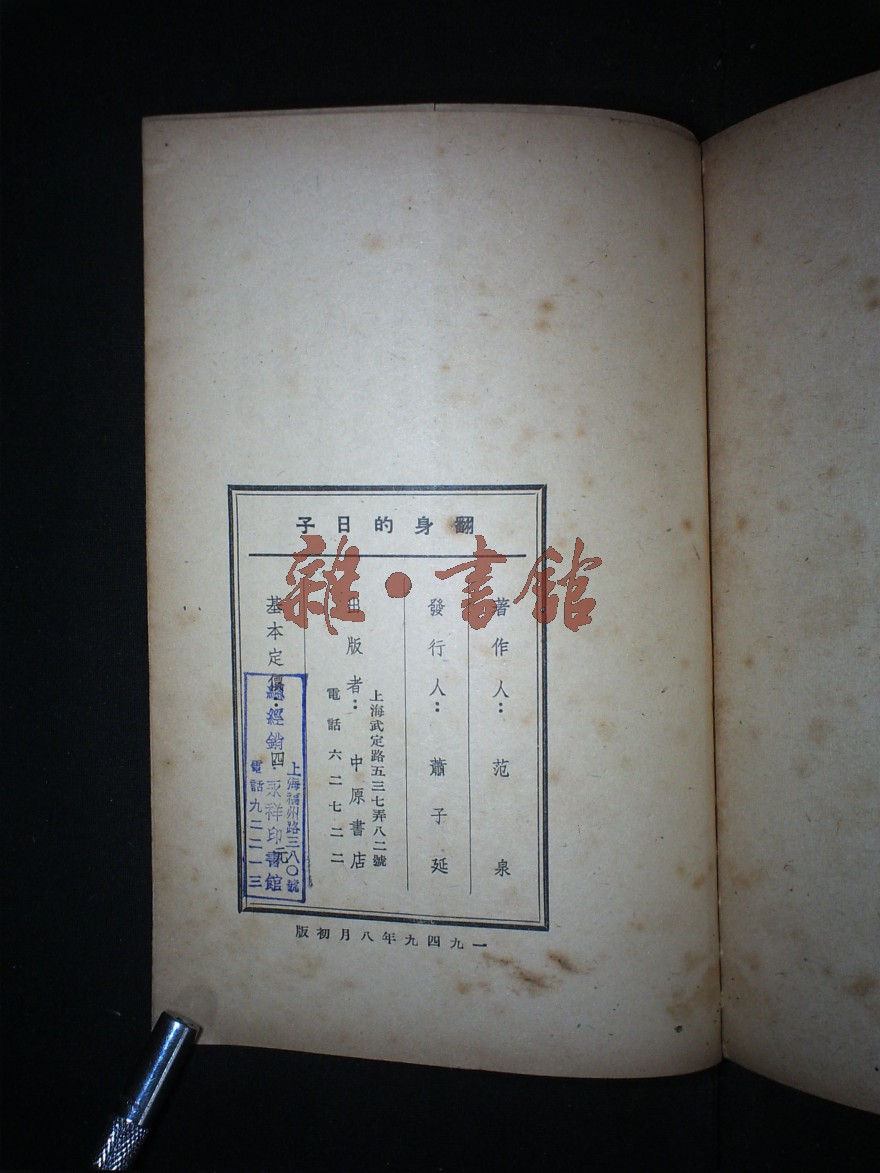 翻身的日子
著作人：范泉
發行人：蕭子延
上海武定路五三七弄八二號
出版者：中原書店
電話六二七二二
基本定價：四元
上海福州路三八〇號
總經銷永祥印書館
電話九二二一三
一九四九年八月初版
雜·書館